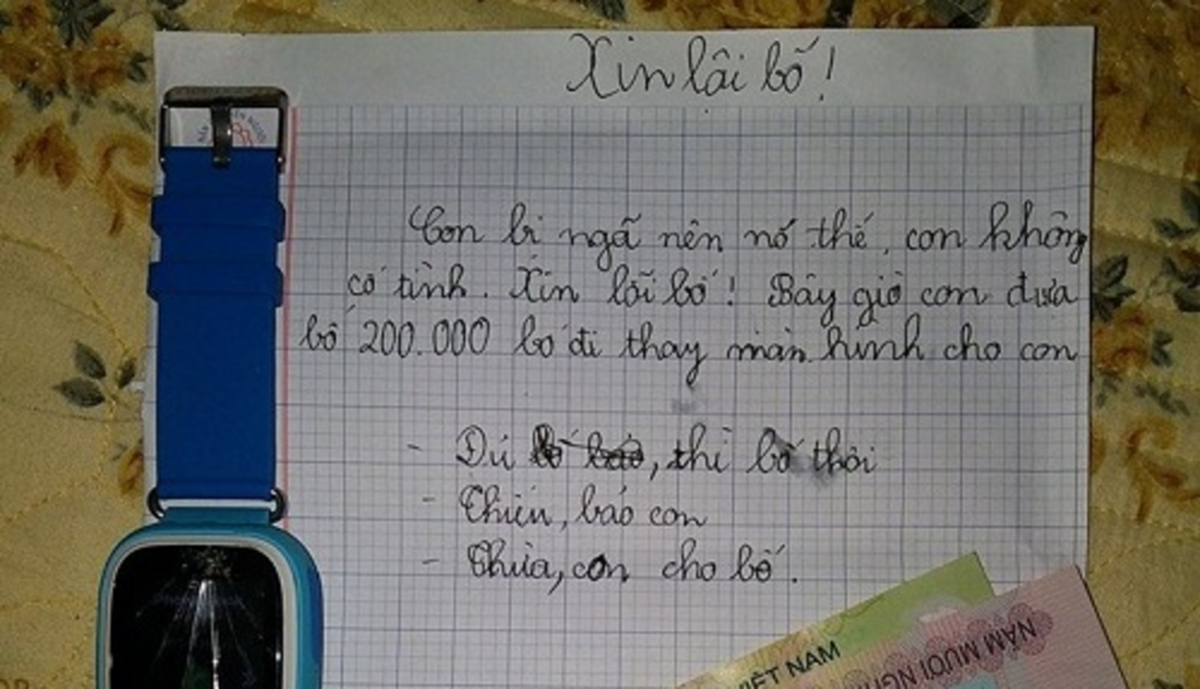 Xin lôi bố!
Con bi ngã nên nó thế, con không
cố tình. Xin lỗi bố! Bây giờ con đưa
bố 200.000 bố đi thay màn hình cho con
- Đủ, thì bố thôi
- Thiếu, báo con
- Thừa, con cho bố.
VIỆT NAM
NĂM MƯƠI NGH